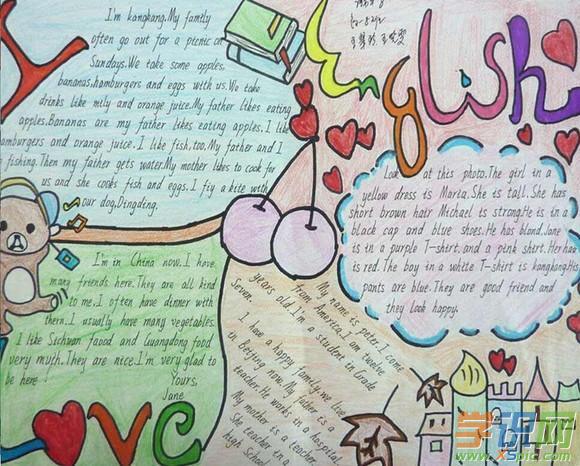 I'm kangkang.My family
often go out for a picnic on
Sundays.We take some apples.
bananas,hamburgers and eggs with us.We take
drinks like mily and orange juice.My father likes eating
apples.Bananas are my father likes eating apples.I like
hamburgers and orange juice.I like fish,too.My father and I
fishing.Then my father gets water.My mother likes to cook for
us and she cooks fish and eggs.I fiy a kite with
our dog,Dingding.
English
Look at this photo.The girl in a
yellow dress is Maria.She is tall.She has
short brown hair Michael is strong.He is in a
black cap and blue shoes.He has bland.Jane
is in a purple T-shirt.and a pink shirt.Her hae
is red.The boy in a white T-shirt is kangkang.His
pants are blue.They are good friend and
they look happy.
I'm in China now.I have
many friends here.They are all kind
to me.I often have dinner with
them.I usually have many vegetables.
I like Sichwan faood and Guangdong food
very myth.They are nice.I'm very glad to
be here!
Yours,
Jane
My name is peter.I come
from America.I am twelve
years old.I'm a student in Grade
Seven.
I have a happy family.we live
in Beijing now.My father is a
teacher.He works in a hospital
My mother is a teacher
She teacher in a
high School
LOVE
学识网
www.xspic.com